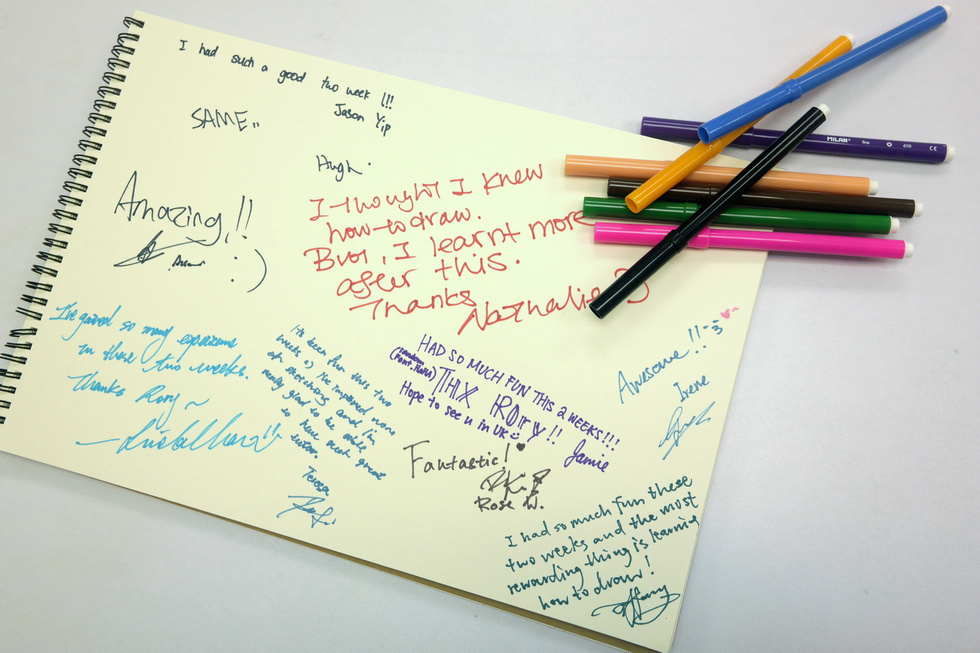 I had such a good two week !!!
Jason Yip
SAME..
Hugh.
Amazing!!
:)
I thought I knew
how to draw.
But, I learnt more
after this.
Thanks
Nathalie
I've gained so many experiences
in these two weeks.
Thanks Rory~
It's been fun this two
weeks, I've improved more
on sketching and I'm
really glad to be able
to have such great
tutor.
Teresa
HAD SO MUCH FUN THIS 2 WEEKS!!!
(random font. HaHa) THX RORY!!
Hope to see u in UK
Jamie
Fantastic!
Rose W.
Awesome!!
Irene
I had so much fun these
two weeks and the most
rewarding thing is learning
how to draw!
Tiffany
MILAN fine 610 CE